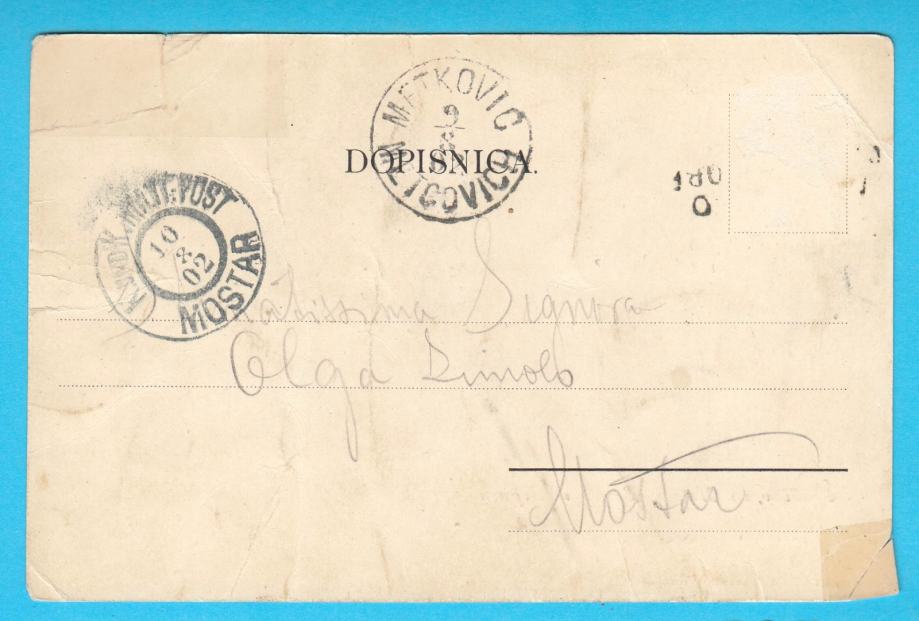 METKOVIĆ
9
8
METCOVICH
DOPISNICA.
180
0
K.u.K. MILIT. POST
10
8
02
MOSTAR
Signora
Olga
Mostar